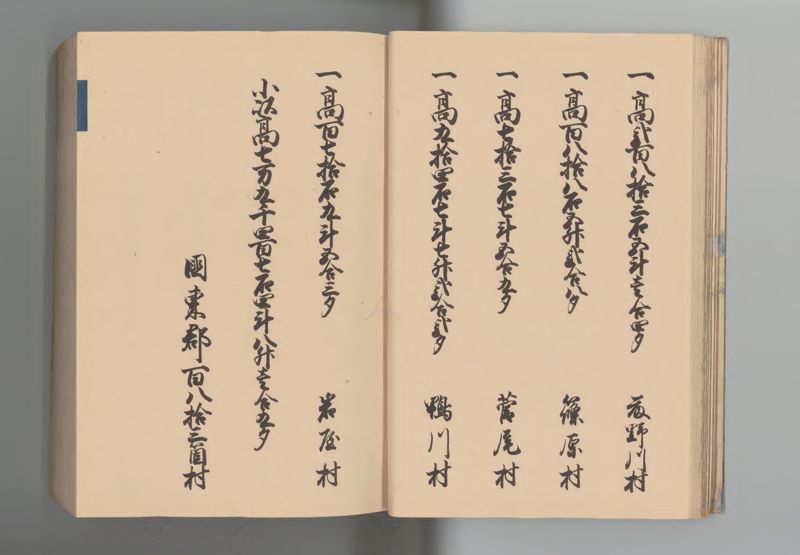 一高弐百八拾三石五斗壱合四夕 荻野川村
一高百八拾八石五升弐合八夕 篠原村
一高七拾三石七斗五合五夕 菅尾村
一高五拾四石七斗七升弐合弐夕 鴨川村
一高百七拾石五斗五合三夕 岩屋村
小以高七万五千四百七石四斗八升壱合五夕
国東郡百八拾三箇村